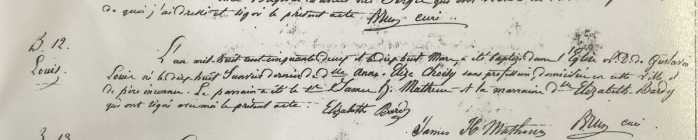 de quoi j'ai dressé et signé le présent acte Bruy curé..
B. 12. L'an mil huit cent cinquante deux et le dix huit Mars, a été baptisé dans l'Eglise N.D. de
Louis. Louis né le dix huit Janvier dernier de Dlle Anne Eliza sans profession domiciliée en cette ville et
de père inconnu. Le parrain a été le Sr James H. Mathieu et la marraine Dlle Elizabeth Bardy
qui ont signé avec moi le présent acte. Elizabeth Bardy
James H Mathieu Bruy curé
B. 13